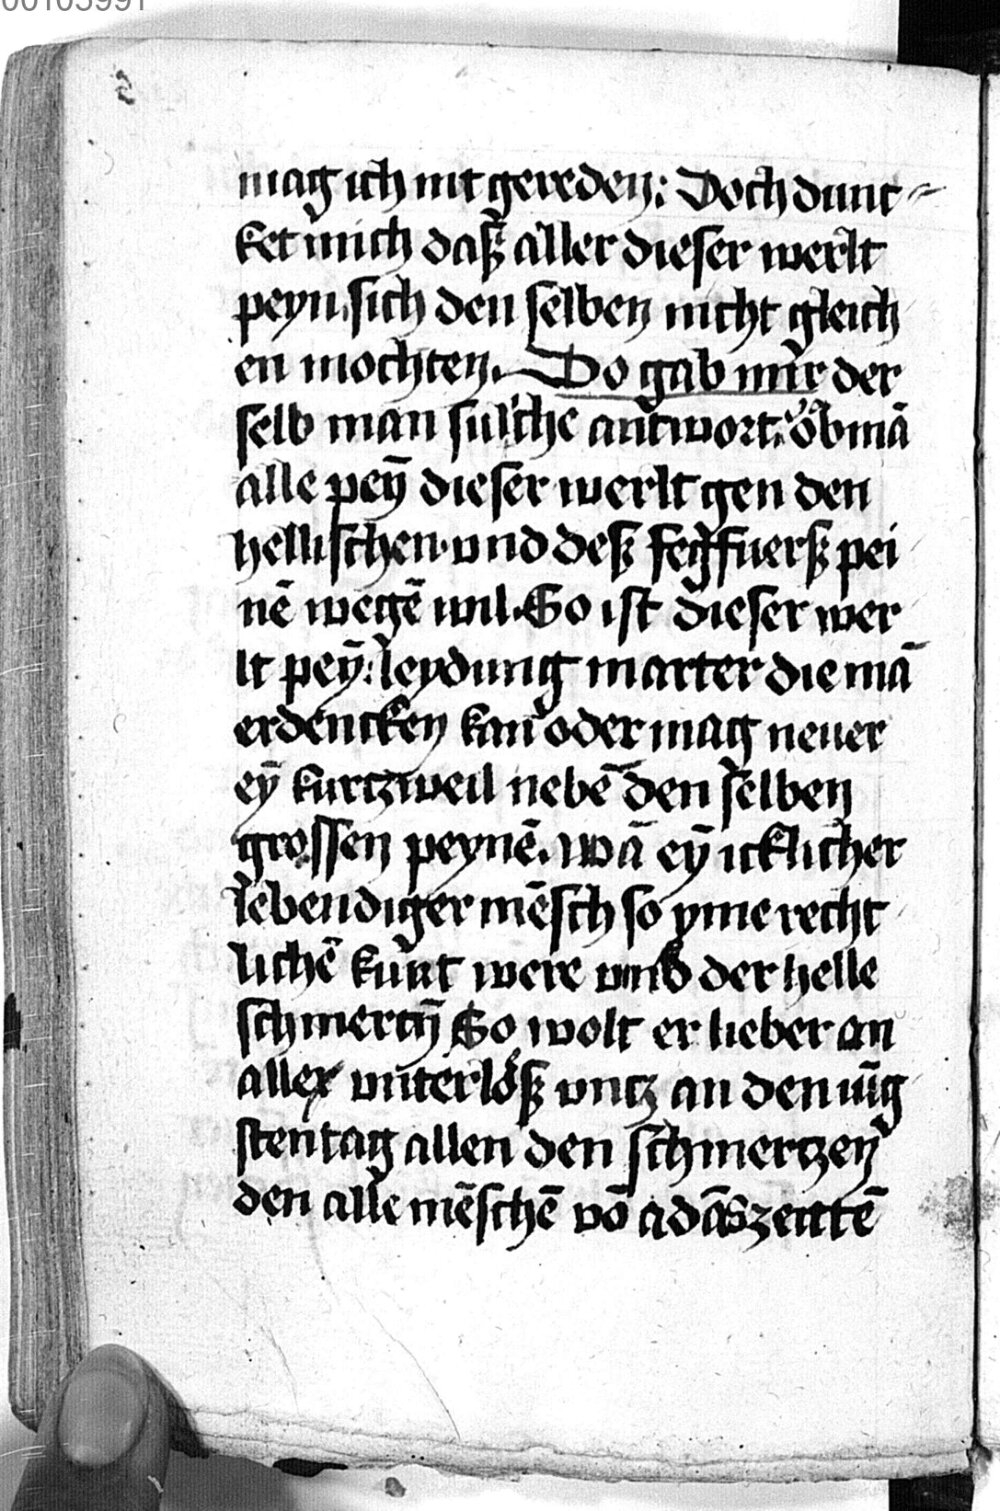 00103991
mag ich nit gereden: Doch dunc
ket mich dasz aller dieser werlt
peyn sich den selben nicht gleich
en mochten. Do gab mir der
selb man sulche antwort. ob mā
alle peȳ dieser werlt gen den
hellischen vnd desz fegfuersz pei
nē wegē wil. So ist dieser wer
lt peȳ: leydung marter die mā
erdencken kan oder mag neuer
eȳ kurtzweil nebē den selben
grossen peynē. wā eȳ icklicher
lebendiger mēsch so yme recht
lichē kunt were vmb der helle
schmertȳ So wolt er lieber an
alles vnterlösz vntz an den iūg
sten tag allen den schmertzen
den alle mēschē vō adās zeitē